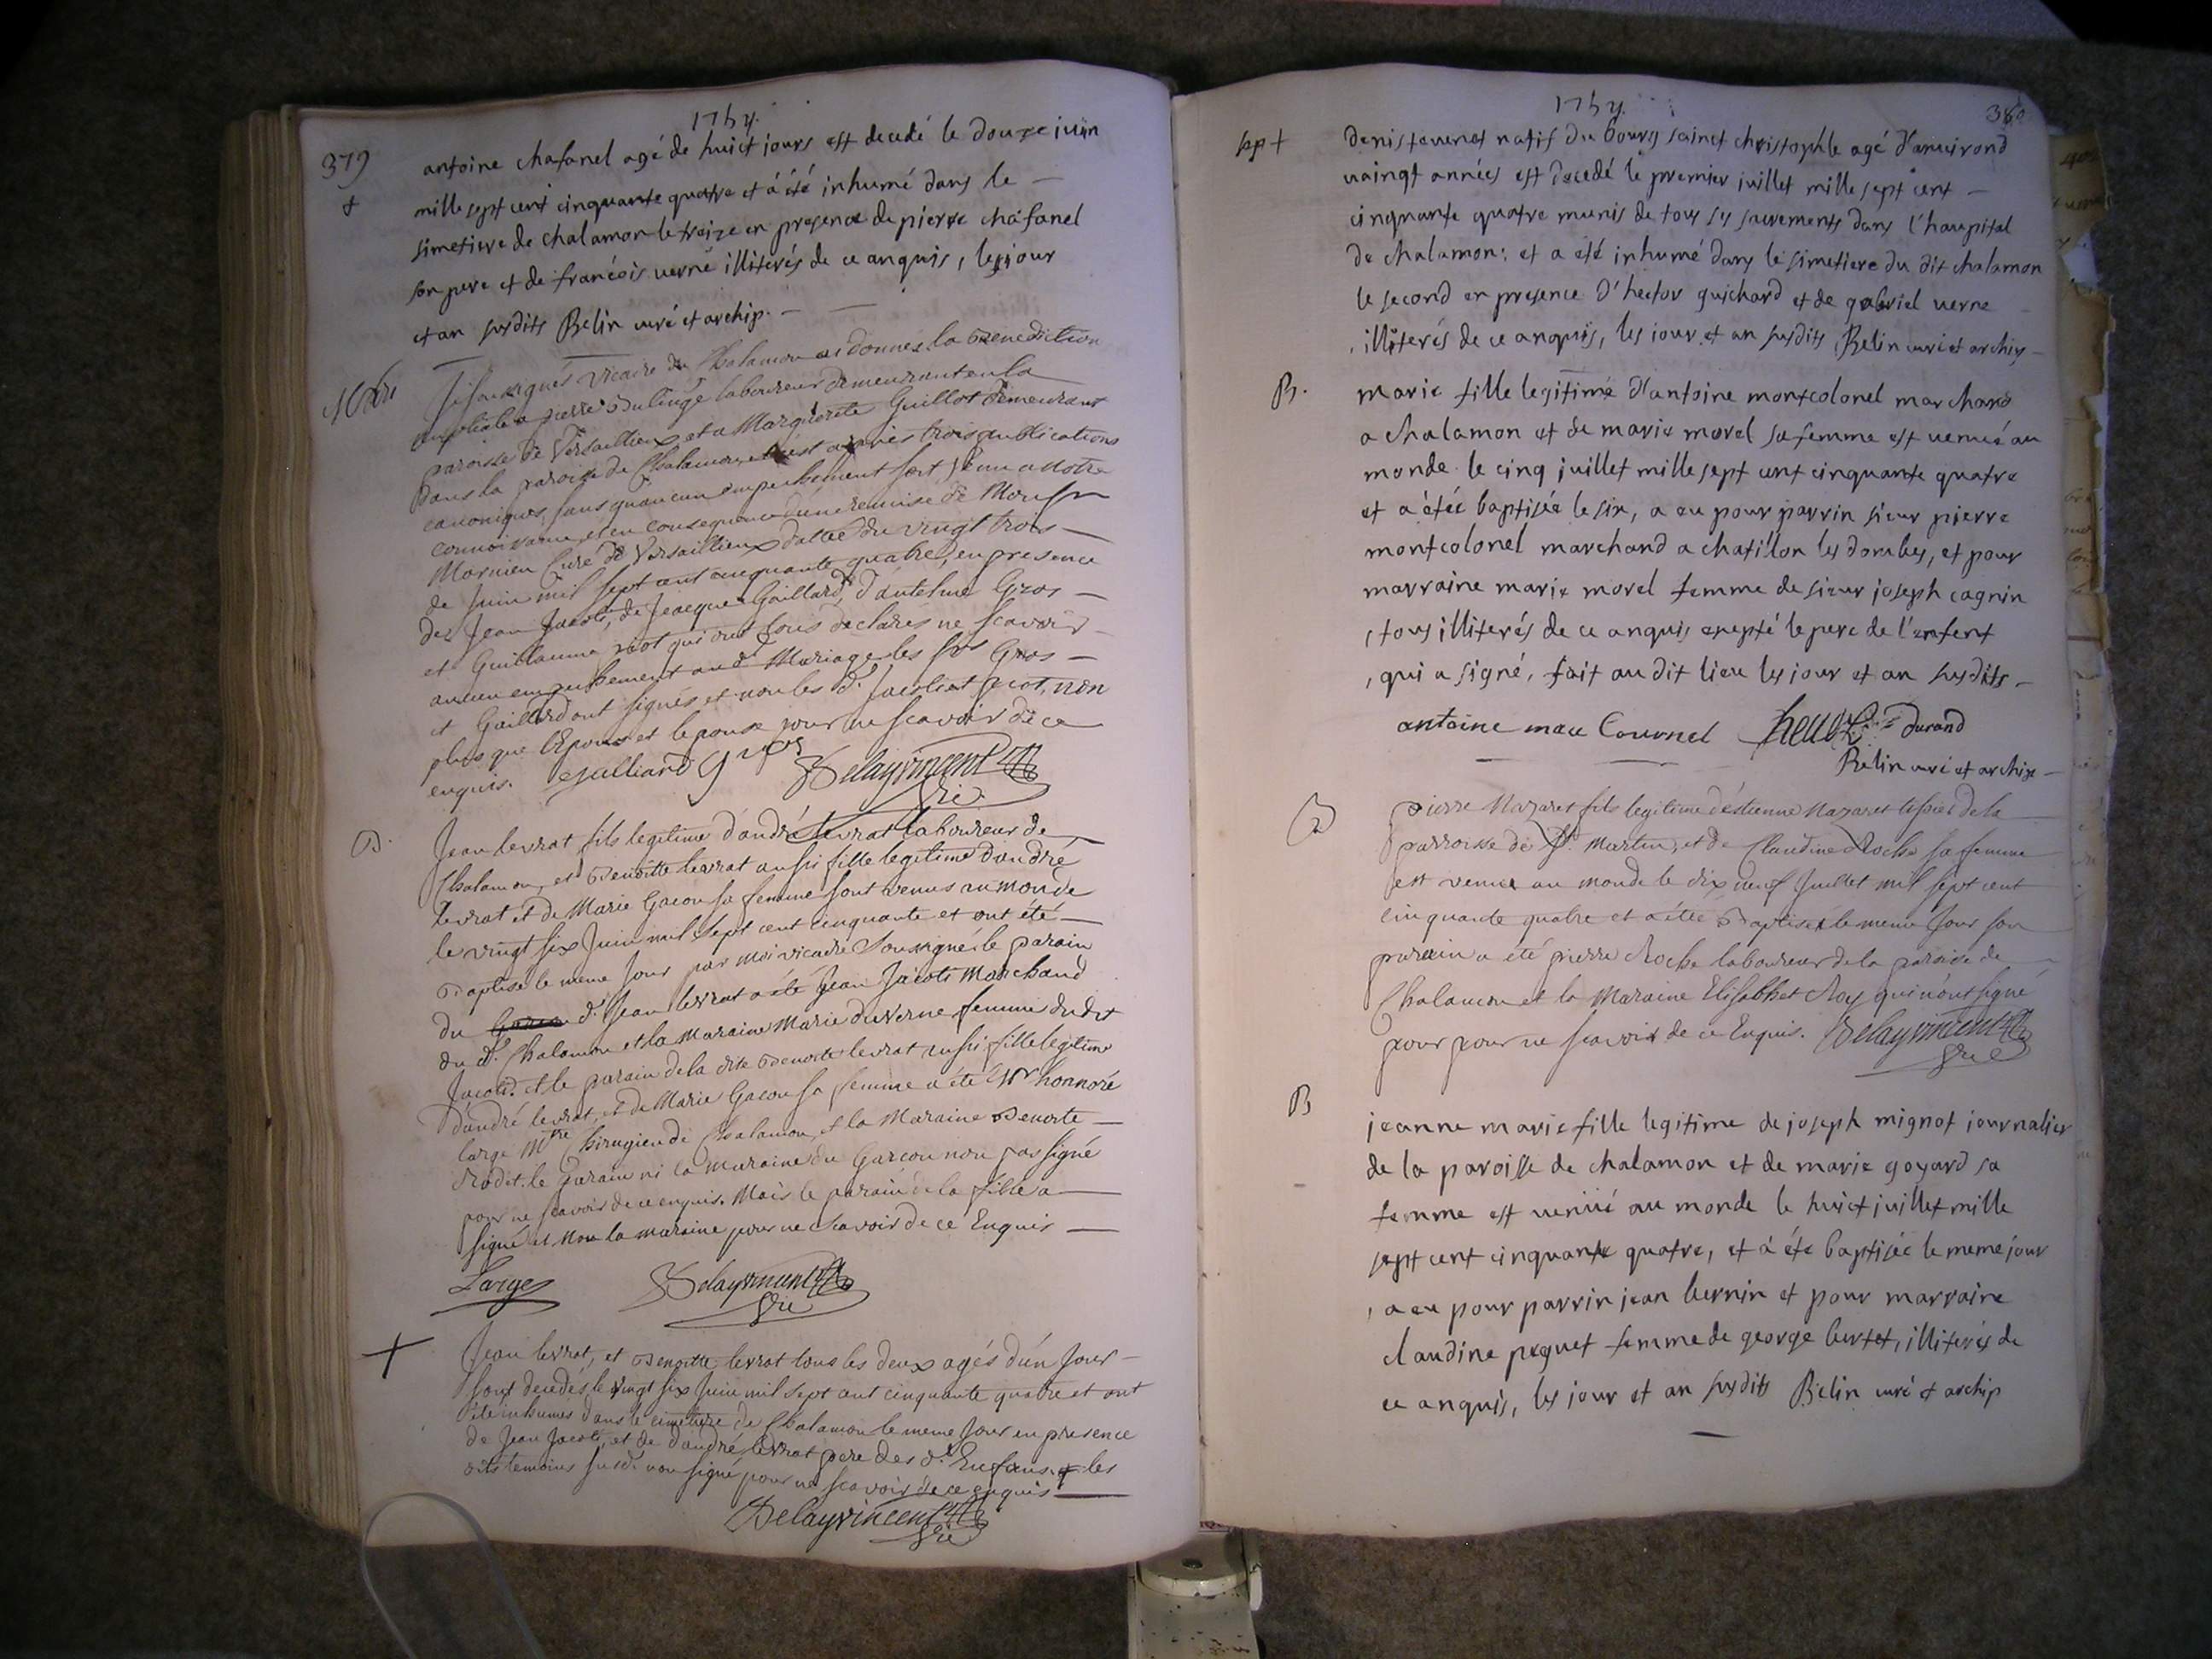 1754.
379
antoine chafanel agé de huict jours est decedé le douze iuin
+
mille sept cent cinquante quatre et á été inhumé dans le
simetiere de chalamon le treize en presence de pierre chafanel
son pere et de francois verné illiterés de ce anquis, les jour
et an susdits Belin curé et archip.
Je sousignés vicaire de Chalamon ai donnés la Benediction
nuptiale a pierre laboureur demeurant en la
paroisse de Versaillieux et a Marguerite Guillot demeurant
dans la paroisse de Chalamon et c'est apres trois publications
canoniques, sans qu'aucun empechement soit venu a notre
connoissance et en consequence d'une remise de Monsr
Mornieu Curé de Versaillieux dattée du vingt trois
de Juin mil sept cent cinquante quatre, en presence
des Jean Jacots, de Jeacques Gaillard, d'antelme Gros
et Guillaume qui ont tous declarés ne scavoir
aucun empechement aud. Mariage les srs Gros
et Gaillard ont signés et non les d. non
plus que l'Epoux et l'epouse pour ne scavoir de ce
enquis. Delayvincent
vic
B.
Jean levrat fils legitime d'andré levrat laboureur de
Chalamon, et Benoitte levrat aussi fille legitime d'andré
levrat et de Marie Gacon sa femme sont venus au monde
le vingt six Juin mil sept cent cinquante et ont été
Baptisé le meme Jour par moi vicaire Sousigné le parain
du d. Jean levrat a été Jean Jacots Marchand
du d. Chalamon et la Maraine Marie duverne femme dudit
Jacots. et le parain de la dite Benoite levrat aussi fille legitime
d'andré levrat, et de Marie Gacon sa femme a été Mr honnoré
large Mtre Chirugien de Chalamon, et la Maraine Benoite
le parain ni la maraine du Garcon non pas signé
pour ne scavoir de ce enquis. Mais le parain de la fille a
signé et non la maraine pour ne scavoir de ce Enquis
Large Delayvincent
vic
+
Jean levrat, et Benoitte levrat tous les deux agés d'un Jour
sont decedés le vingt six Juin mil sept cent cinquante quatre et ont
été inhumés dans le cimetiere de Chalamon le meme Jour en presence
de Jean Jacots, et de d'andré levrat pere des d. Enfans. les
dits temoins susd. non signé pour ne scavoir de ce enquis
Delayvincent
vic
1754.
380
denis tevenet natif du bourg sainct christophle agé d'anvirond
vaingt années est decedé le premier juillet mille sept cent
cinquante quatre munis de tous ses sacrements dans l'haupital
de chalamon; et a été inhumé dans le simetiere du dit chalamon
le second en presence d'hector guichard et de gabriel verne
illiterés de ce anquis, les jour et an susdits Belin curé et archip
B.
marie fille legitime d'antoine montcolonel marchand
a chalamon et de marie morel sa femme est venuë au
monde le cinq juillet mille sept cent cinquante quatre
et a étée baptisée le six, a eu pour parrin sieur pierre
montcolonel marchand a chatillon les dombes, et pour
marraine marie morel femme de sieur joseph cagnin
, tous illiterés de ce anquis exepté le pere de l'enfent
, qui a signé, fait au dit lieu les jour et an susdits
antoine mau Cournel durand
Belin curé et archip
B
pierre Nazaret fils legitime d'estienne Nazaret de la
parroisse de St Martin, et de Claudine Roche sa femme
est venu au monde le dix neuf Juillet mil sept cent
cinquante quatre et a étté Baptisé le meme Jour son
parain a été pierre Roche laboureur de la paroisse de
Chalamon et la Maraine Elisabhet Roy qui n'ont signé
pour pour ne scavoir de ce Enquis. Delayvincent
vic
B
jeanne marie fille legitime de joseph mignot journalier
de la paroisse de chalamon et de marie goyard sa
femme est venuë au monde le huict juillet mille
sept cent cinquante quatre, et á été baptisée le meme jour
, a eu pour parrin jean bernin et pour marraine
claudine peguet femme de george burtet, illiterés de
ce anquis, les jour et an susdits Belin curé et archip